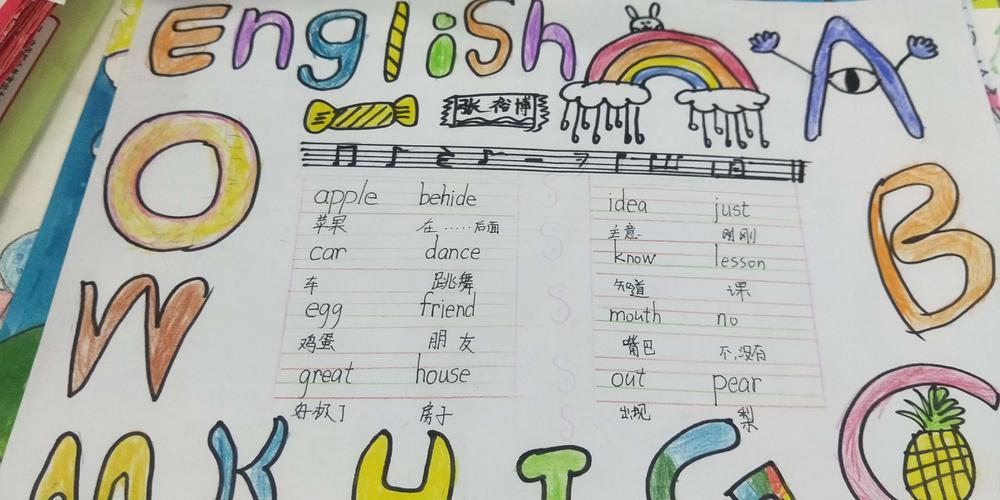 English
A
张裕博
O
apple behide
苹果 在……后面
car dance
车 跳舞
egg friend
鸡蛋 朋友
great house
好极了 房子
idea just
主意 刚刚
know lesson
知道 课
mouth no
嘴巴 不,没有
out pear
出现 梨
B
W
M K U I G C